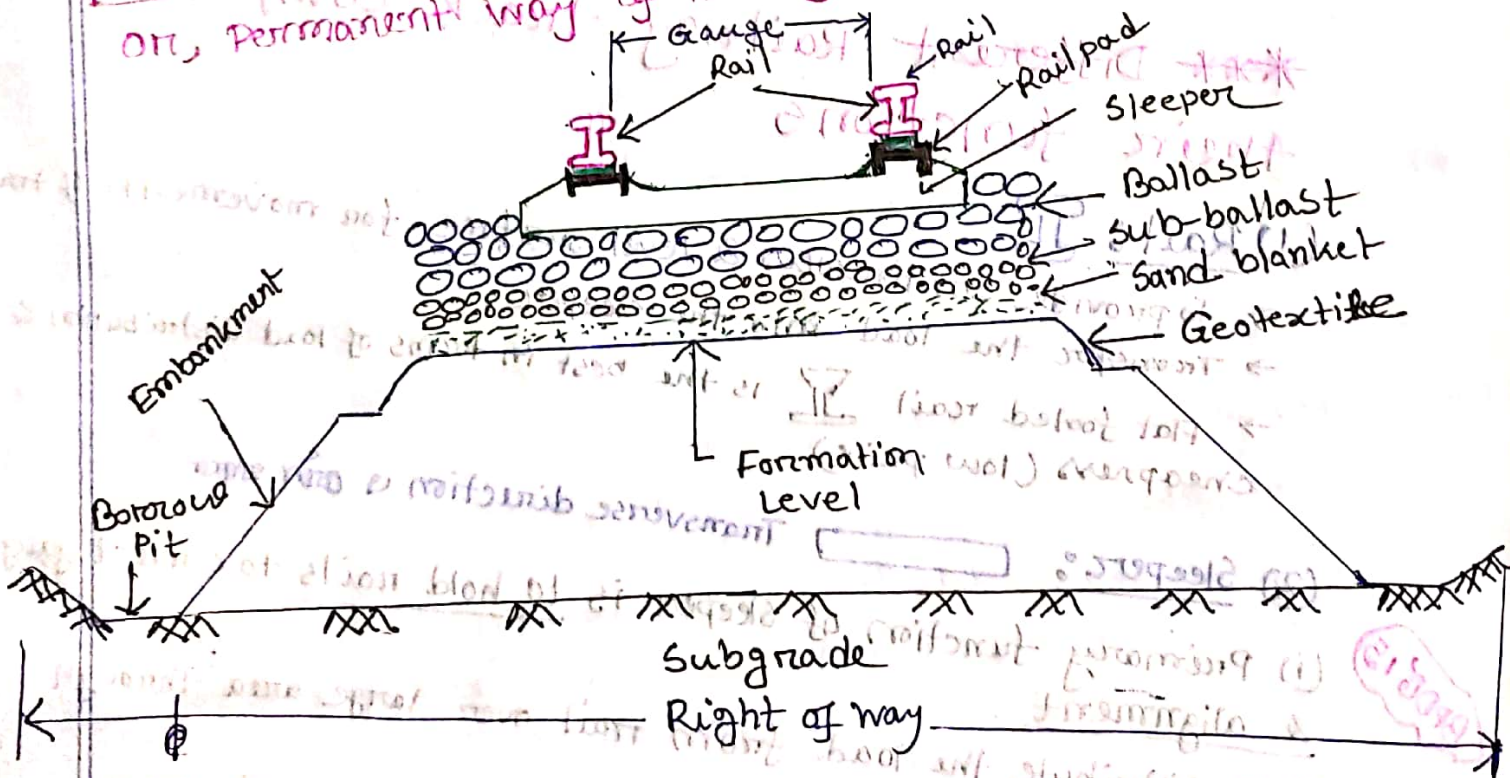 or, Permanent way
Gauge
Rail
Rail
Rail pad
Sleeper
Ballast
Sub-ballast
Sand blanket
Geotextile
Embankment
Formation
Level
Borrow
Pit
Subgrade
Right of way